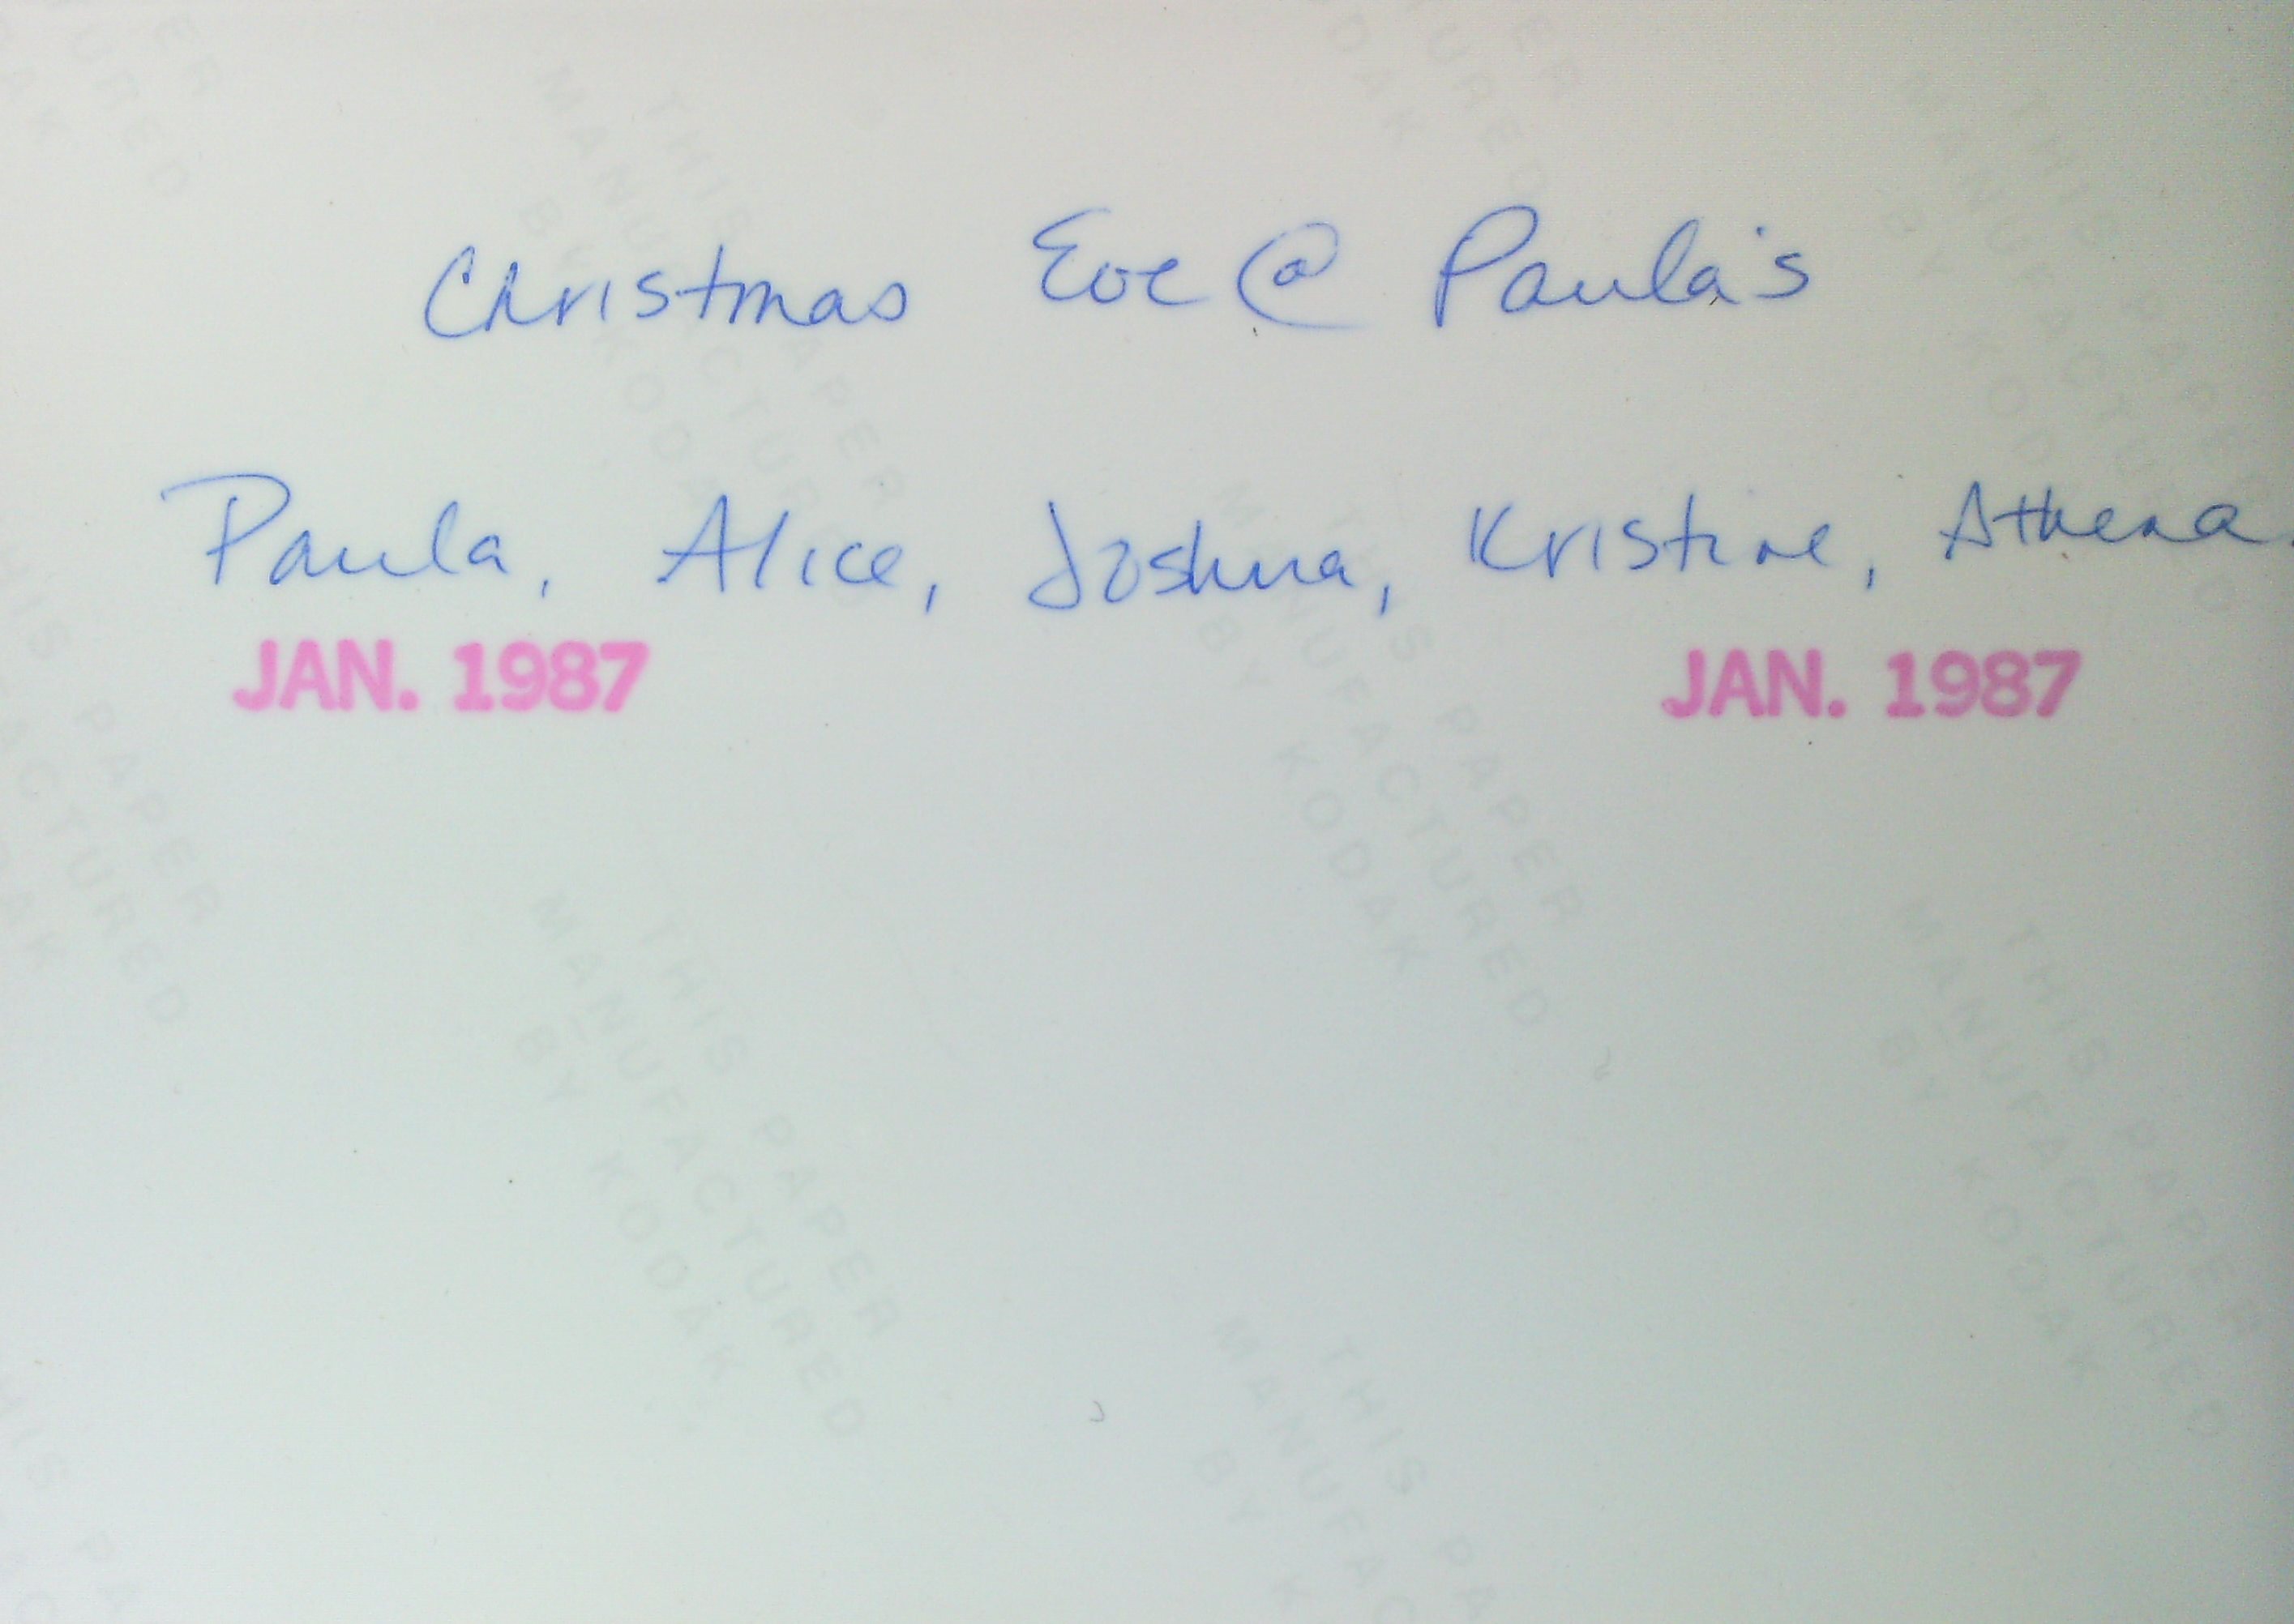 Christmas Eve @ Paula's
Paula, Alice, Joshua, Kristine, Athena
JAN. 1987 JAN. 1987
THIS PAPER
MANUFACTURED
BY KODAK
THIS PAPER
MANUFACTURED
BY KODAK
THIS PAPER
MANUFACTURED
BY KODAK
THIS PAPER
MANUFACTURED
BY KODAK
THIS PAPER
MANUFACTURED
BY KODAK